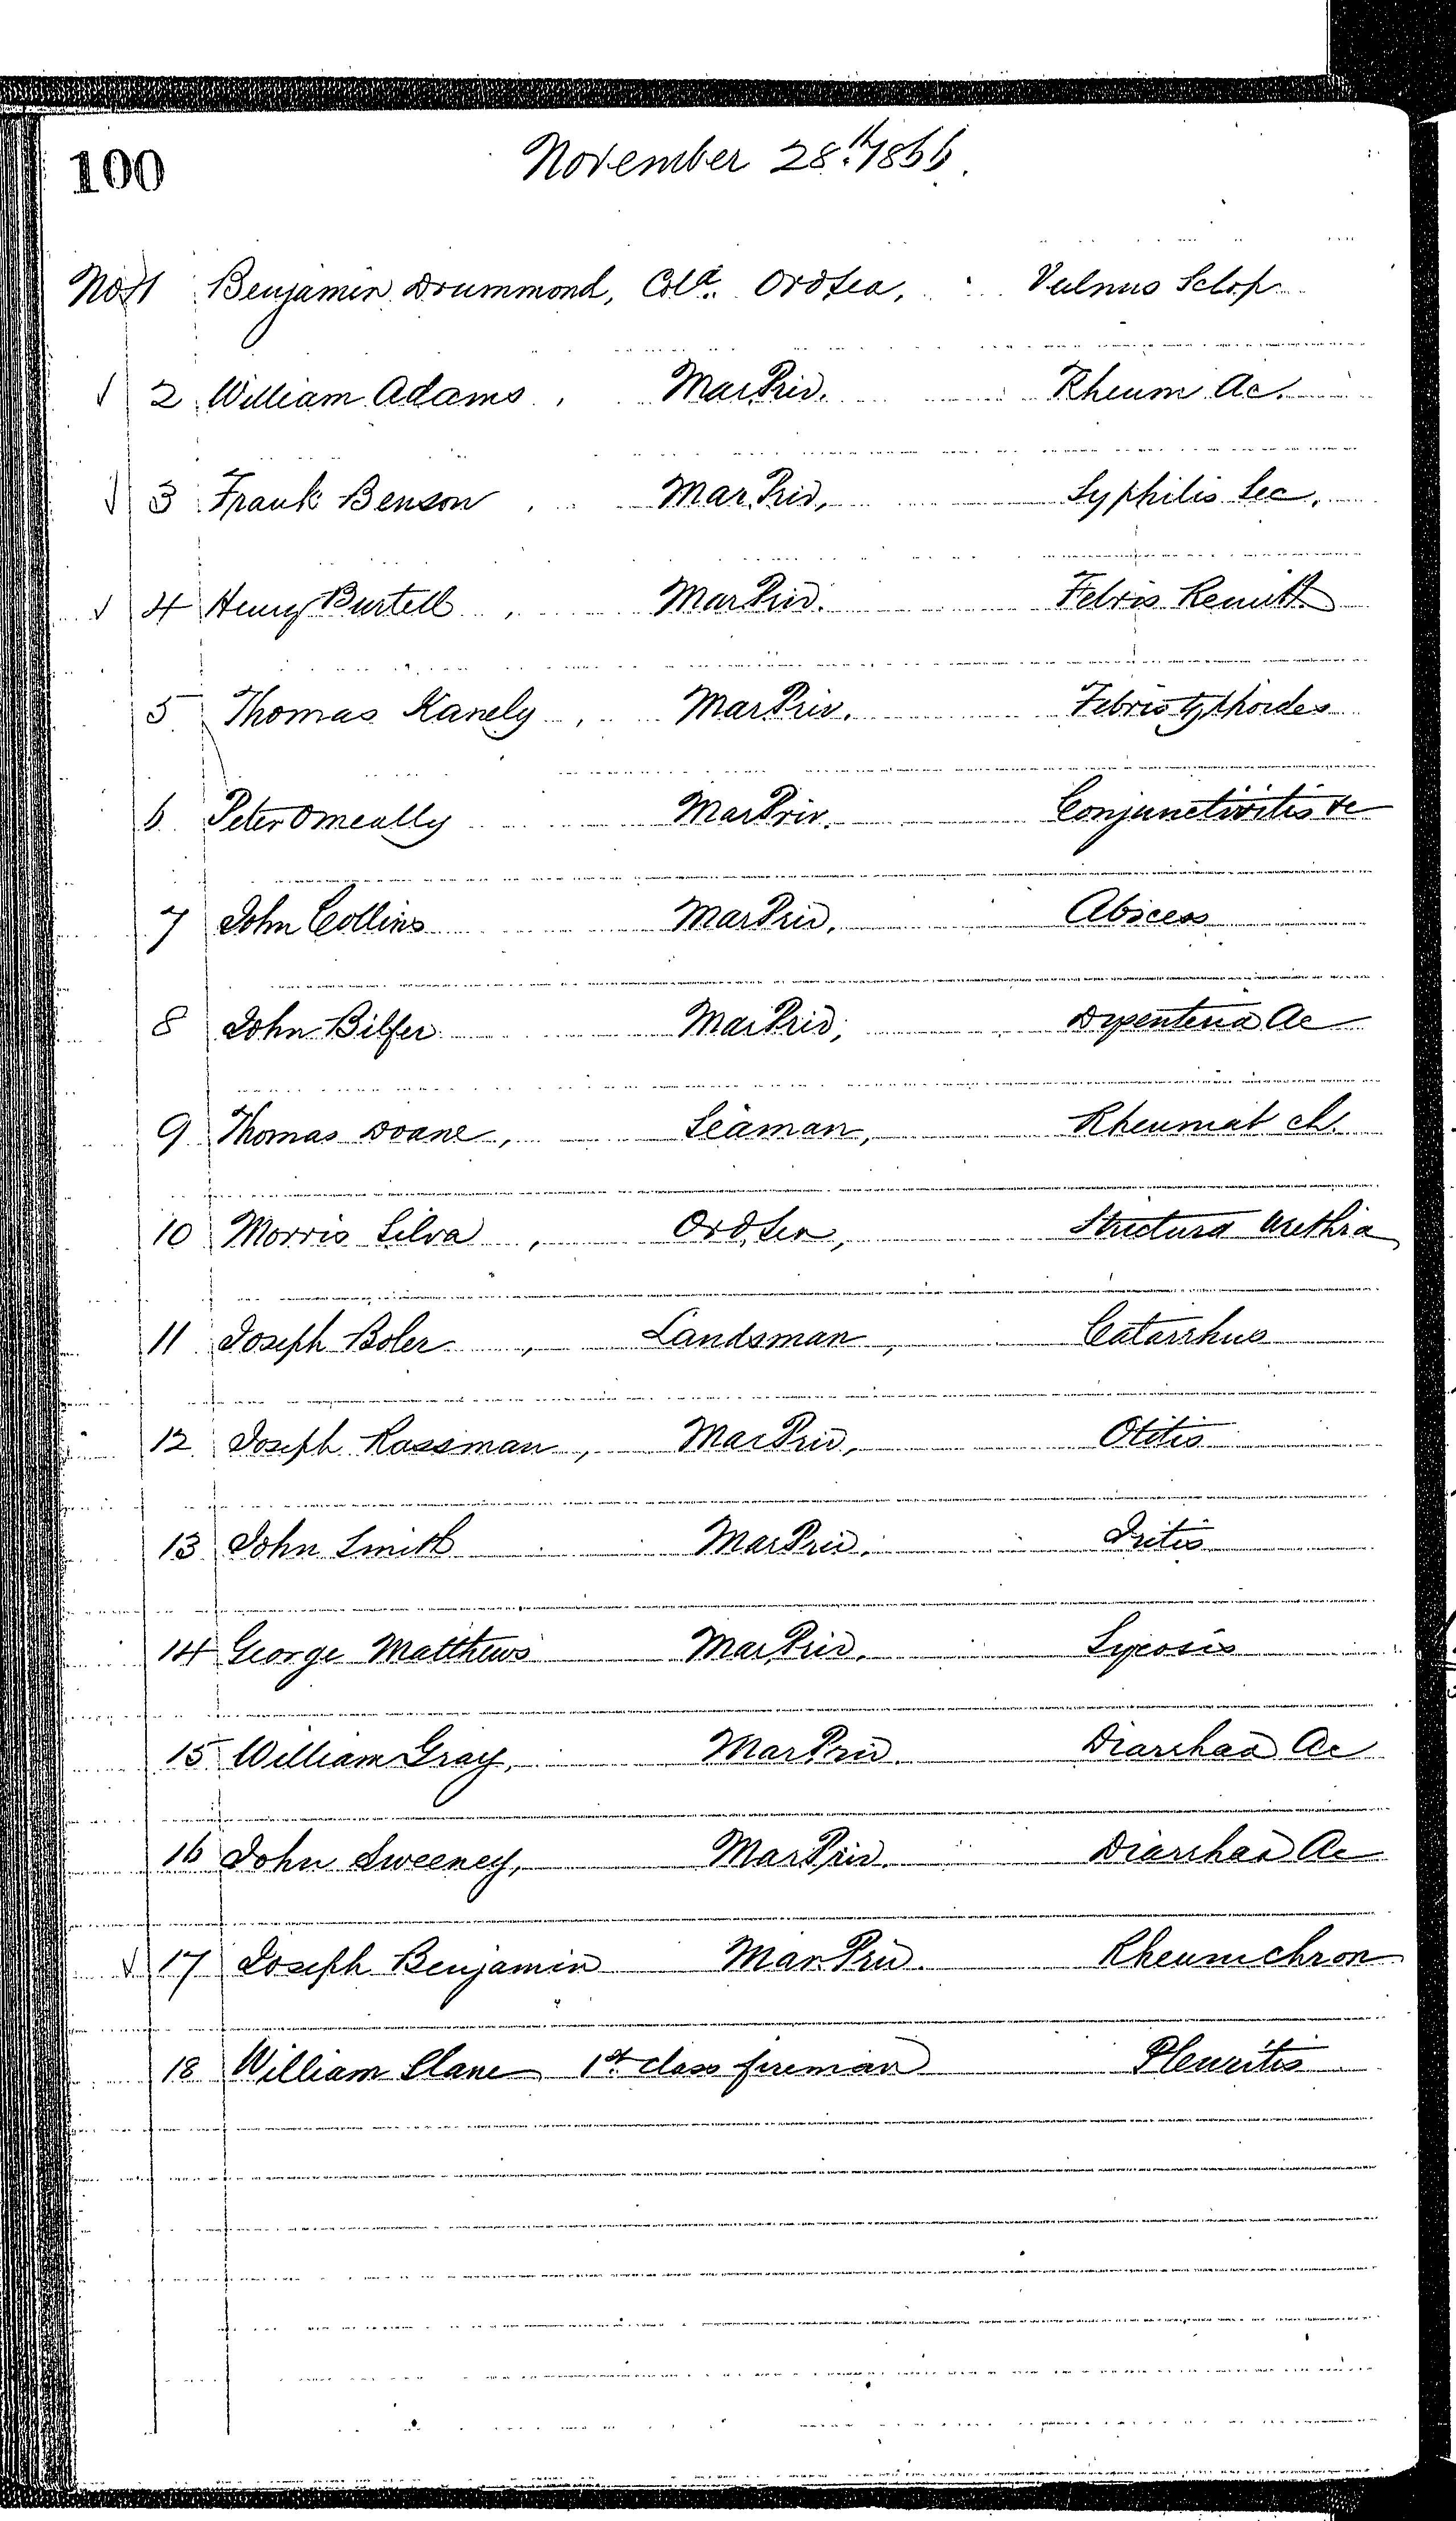 100
November 28th 1866.
No 1 Benjamin Drummond, Cold. Ord Sea, Vulnus Sclop.
√ 2 William Adams, Mar Priv. Rheum Ac.
√ 3 Frank Benson, Mar. Priv, Syphilis Sec.
√ 4 Henry Burtell, Mar Priv. Febris Remitt
5 Thomas Kanely, Mar Priv. Febris typhoides
6 Peter Omeally Mar Priv. Conjunctivitis &c
7 John Collins Mar Priv. Abscess
8 John Bilfer Mar Priv, Dysenteria Ac
9 Thomas Doane, Seaman, Rheumat ch.
10 Morris Silva, Ord, Sea, Strictura Urethra
11 Joseph Boler, Landsman, Catarrhus
12 Joseph Rossman, Mar Priv, Otitis
13 John Smith Mar Priv. Iritis
14 George Matthews Mar, Priv. Sycosis
15 William Gray, Mar Priv. Diarrhaa Ac
16 John Sweeney, Mar Priv. Diarrhaa Ac
√ 17 Joseph Benjamin Mar. Priv. Rheum chron
18 William Slane 1st class fireman Pleuritis